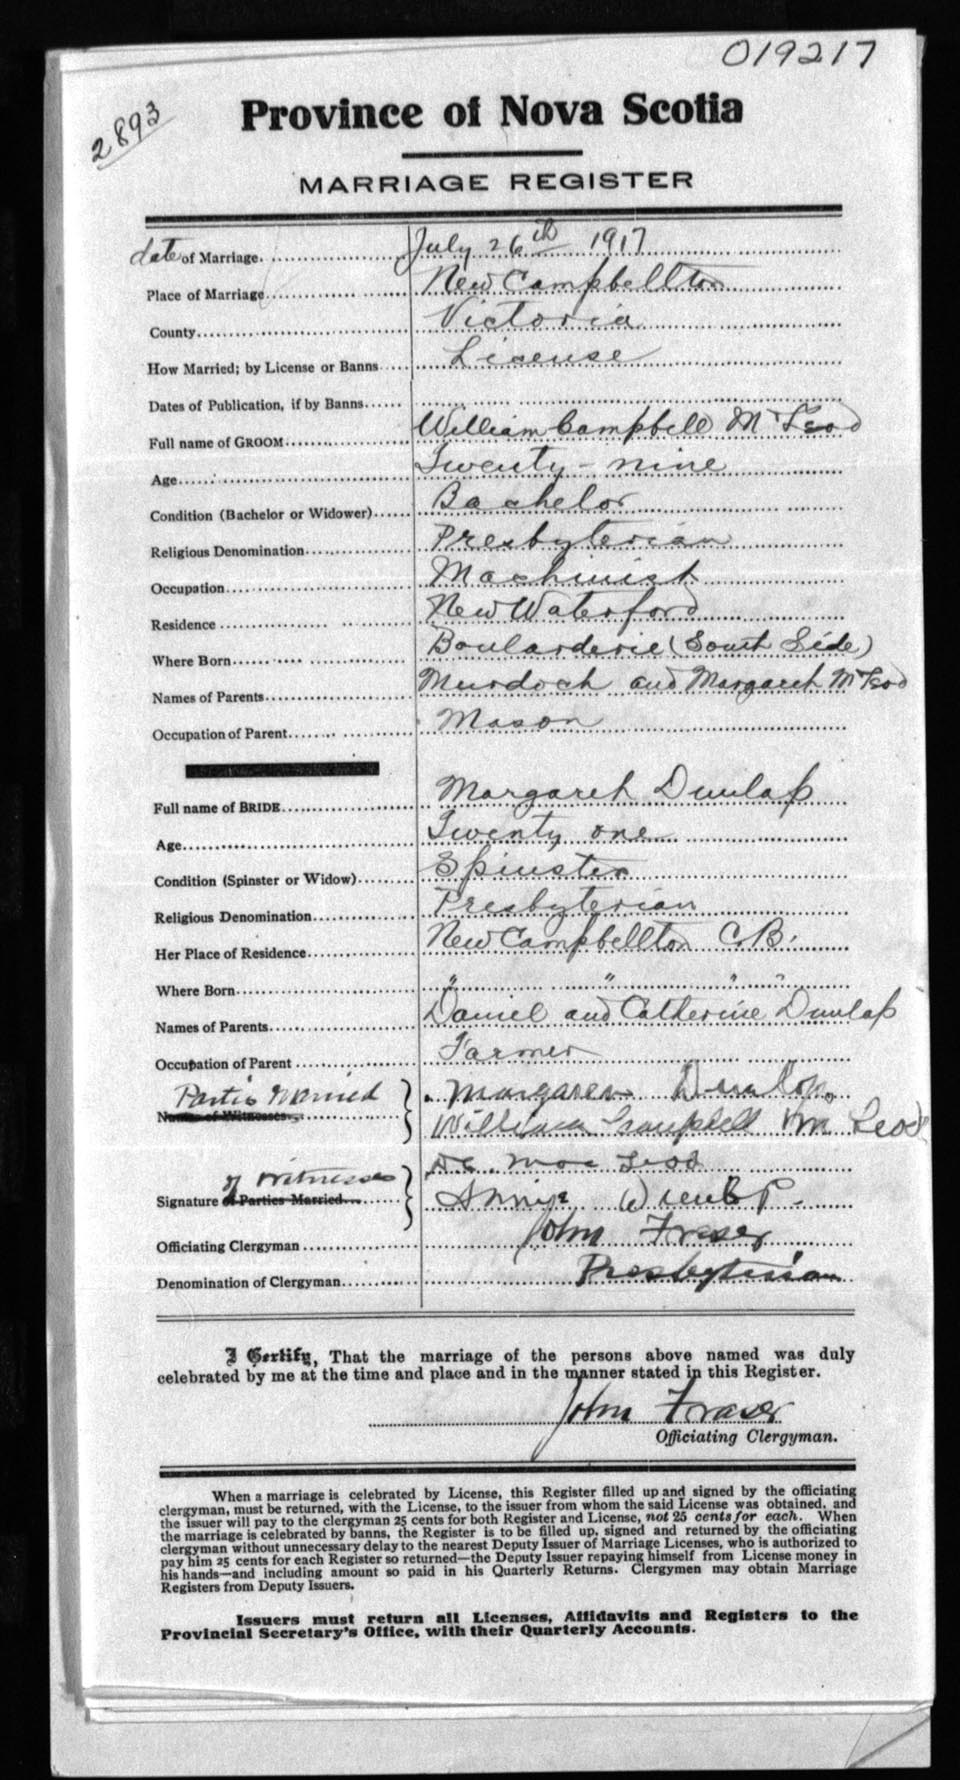 019217
2893
Province of Nova Scotia
MARRIAGE REGISTER
date of Marriage. July 26th 1917
Place of Marriage New Campbellton
County Victoria
How Married; by License or Banns License
Dates of Publication, if by Banns
Full name of GROOM William Campbell McLeod
Age Twenty-nine
Condition (Bachelor or Widower) Bachelor
Religious Denomination Presbyterian
Occupation Machinist
Residence New Waterford
Where Born Boularderie (South Side)
Names of Parents Murdoch and Margaret McLeod
Occupation of Parent Mason
Full name of BRIDE Margaret Dunlap
Age Twenty one
Condition (Spinster or Widow) Spinster
Religious Denomination Presbyterian
Her Place of Residence New Campbellton C.B.
Where Born " " " "
Names of Parents Daniel and Catherine Dunlap
Occupation of Parent Farmer
Parties Married Margaret Dunlop
Names of Witnesses William Campbell McLeod
Mac Leod
Signature of Parties Married of Witnesses Annie Dunlop
Officiating Clergyman John Fraser
Denomination of Clergyman Presbyterian
I Certify, That the marriage of the persons above named was duly
celebrated by me at the time and place and in the manner stated in this Register.
John Fraser
Officiating Clergyman.
When a marriage is celebrated by License, this Register filled up and signed by the officiating
clergyman, must be returned, with the License, to the issuer from whom the said License was obtained, and
the issuer will pay to the clergyman 25 cents for both Register and License, not 25 cents for each. When
the marriage is celebrated by banns, the Register is to be filled up, signed and returned by the officiating
clergyman without unnecessary delay to the nearest Deputy Issuer of Marriage Licenses, who is authorized to
pay him 25 cents for each Register so returned—the Deputy Issuer repaying himself from License money in
his hands—and including amount so paid in his Quarterly Returns. Clergymen may obtain Marriage
Registers from Deputy Issuers.
Issuers must return all Licenses, Affidavits and Registers to the
Provincial Secretary's Office, with their Quarterly Accounts.